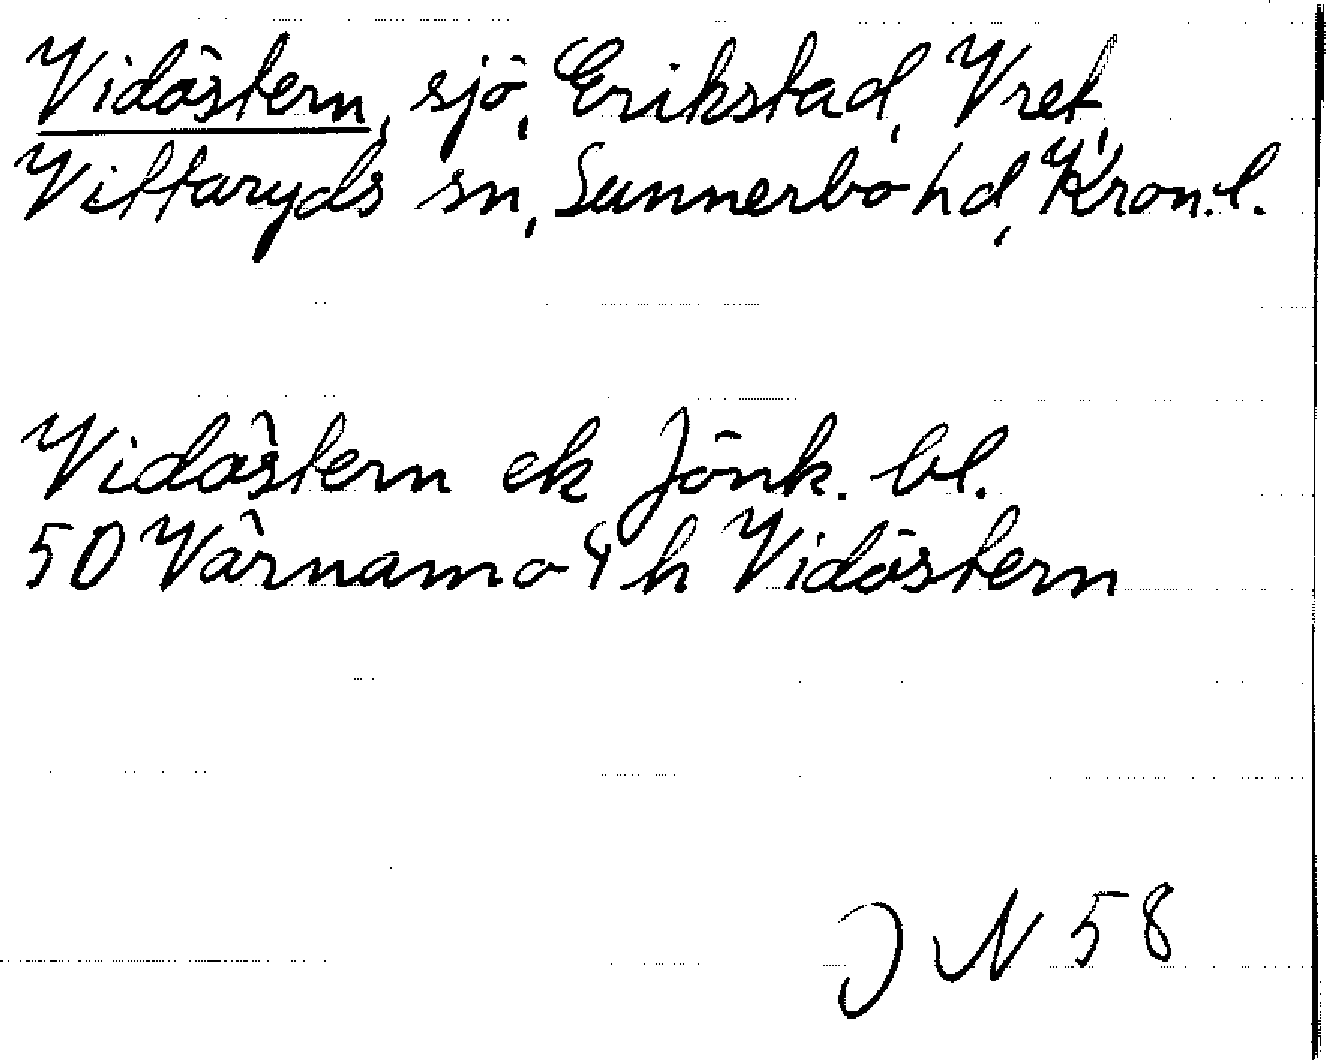 Vidöstern, sjö, Erikstad, Vret,
Vittaryds sn, Sunnerbo hd, Kron.l.
Vidöstern ek Jönk. bl.
50 Värnamo 4 h Vidöstern
J N 58